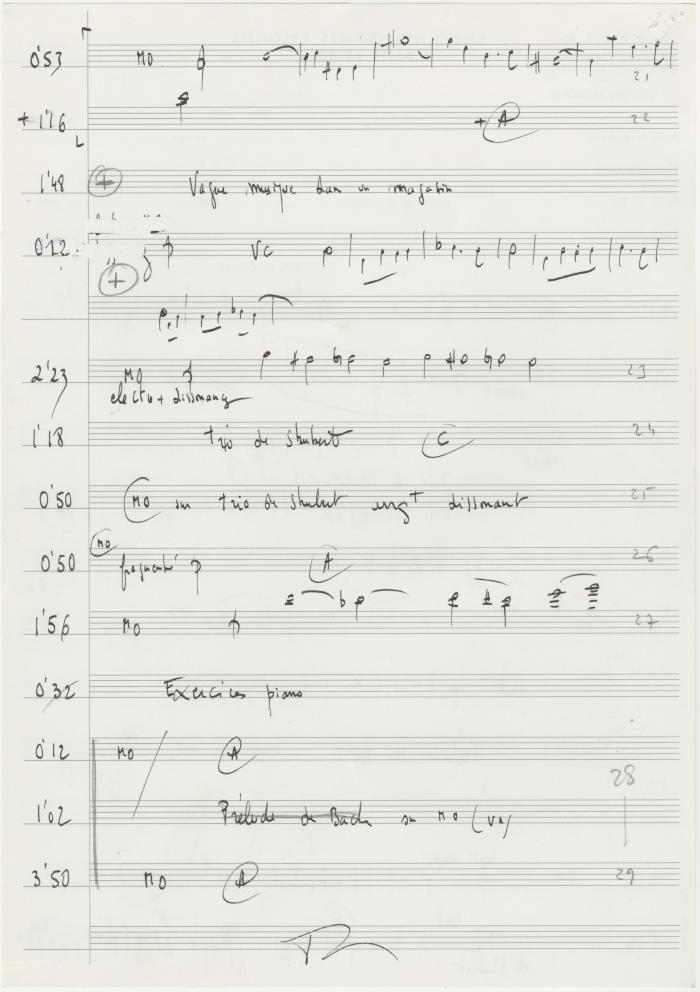 0'53 MO 21
+ 1'16 + A 22
1'48 + Vague musique dans un magasin
0'12 VC
+
2'23 MO 23
electro + dissonance
1'18 trio de Shubert C 24
0'50 MO sur trio de Shubert dissonant 25
MO
0'50 fragmenté A 26
1'56 MO 27
0'32 Exercices piano
0'12 MO A
28
1'02 Prélude de Bach sur MO
3'50 MO A 29